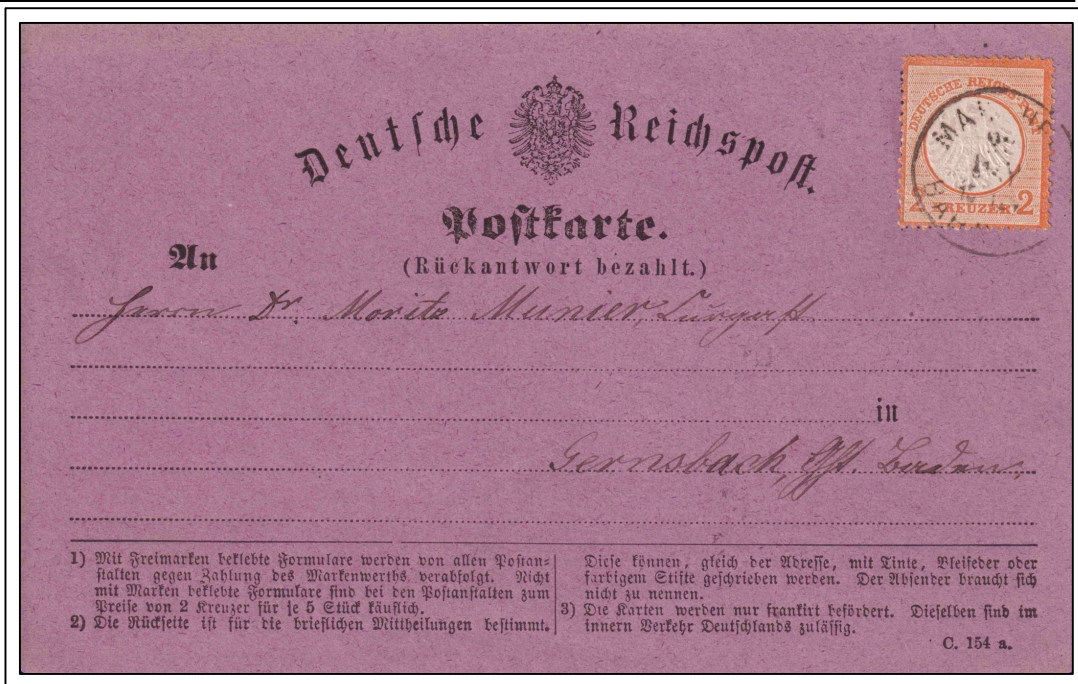 Deutsche Reichspost.
Postkarte.
(Rückantwort bezahlt.)
An
DEUTSCHE REICHS-POST
2 KREUZER 2
Herrn Dr. Moritz Munier,
in
Gernsbach, Baden.
1) Mit Freimarken beklebte Formulare werden von allen Postan-
stalten gegen Zahlung des Markenwerths verabfolgt. Nicht
mit Marken beklebte Formulare sind bei den Postanstalten zum
Preise von 2 Kreuzer für je 5 Stück käuflich.
2) Die Rückseite ist für die brieflichen Mittheilungen bestimmt.
Diese können, gleich der Adresse, mit Tinte, Bleifeder oder
farbigem Stifte geschrieben werden. Der Absender braucht sich
nicht zu nennen.
3) Die Karten werden nur frankirt befördert. Dieselben sind im
innern Verkehr Deutschlands zulässig.
C. 154 a.